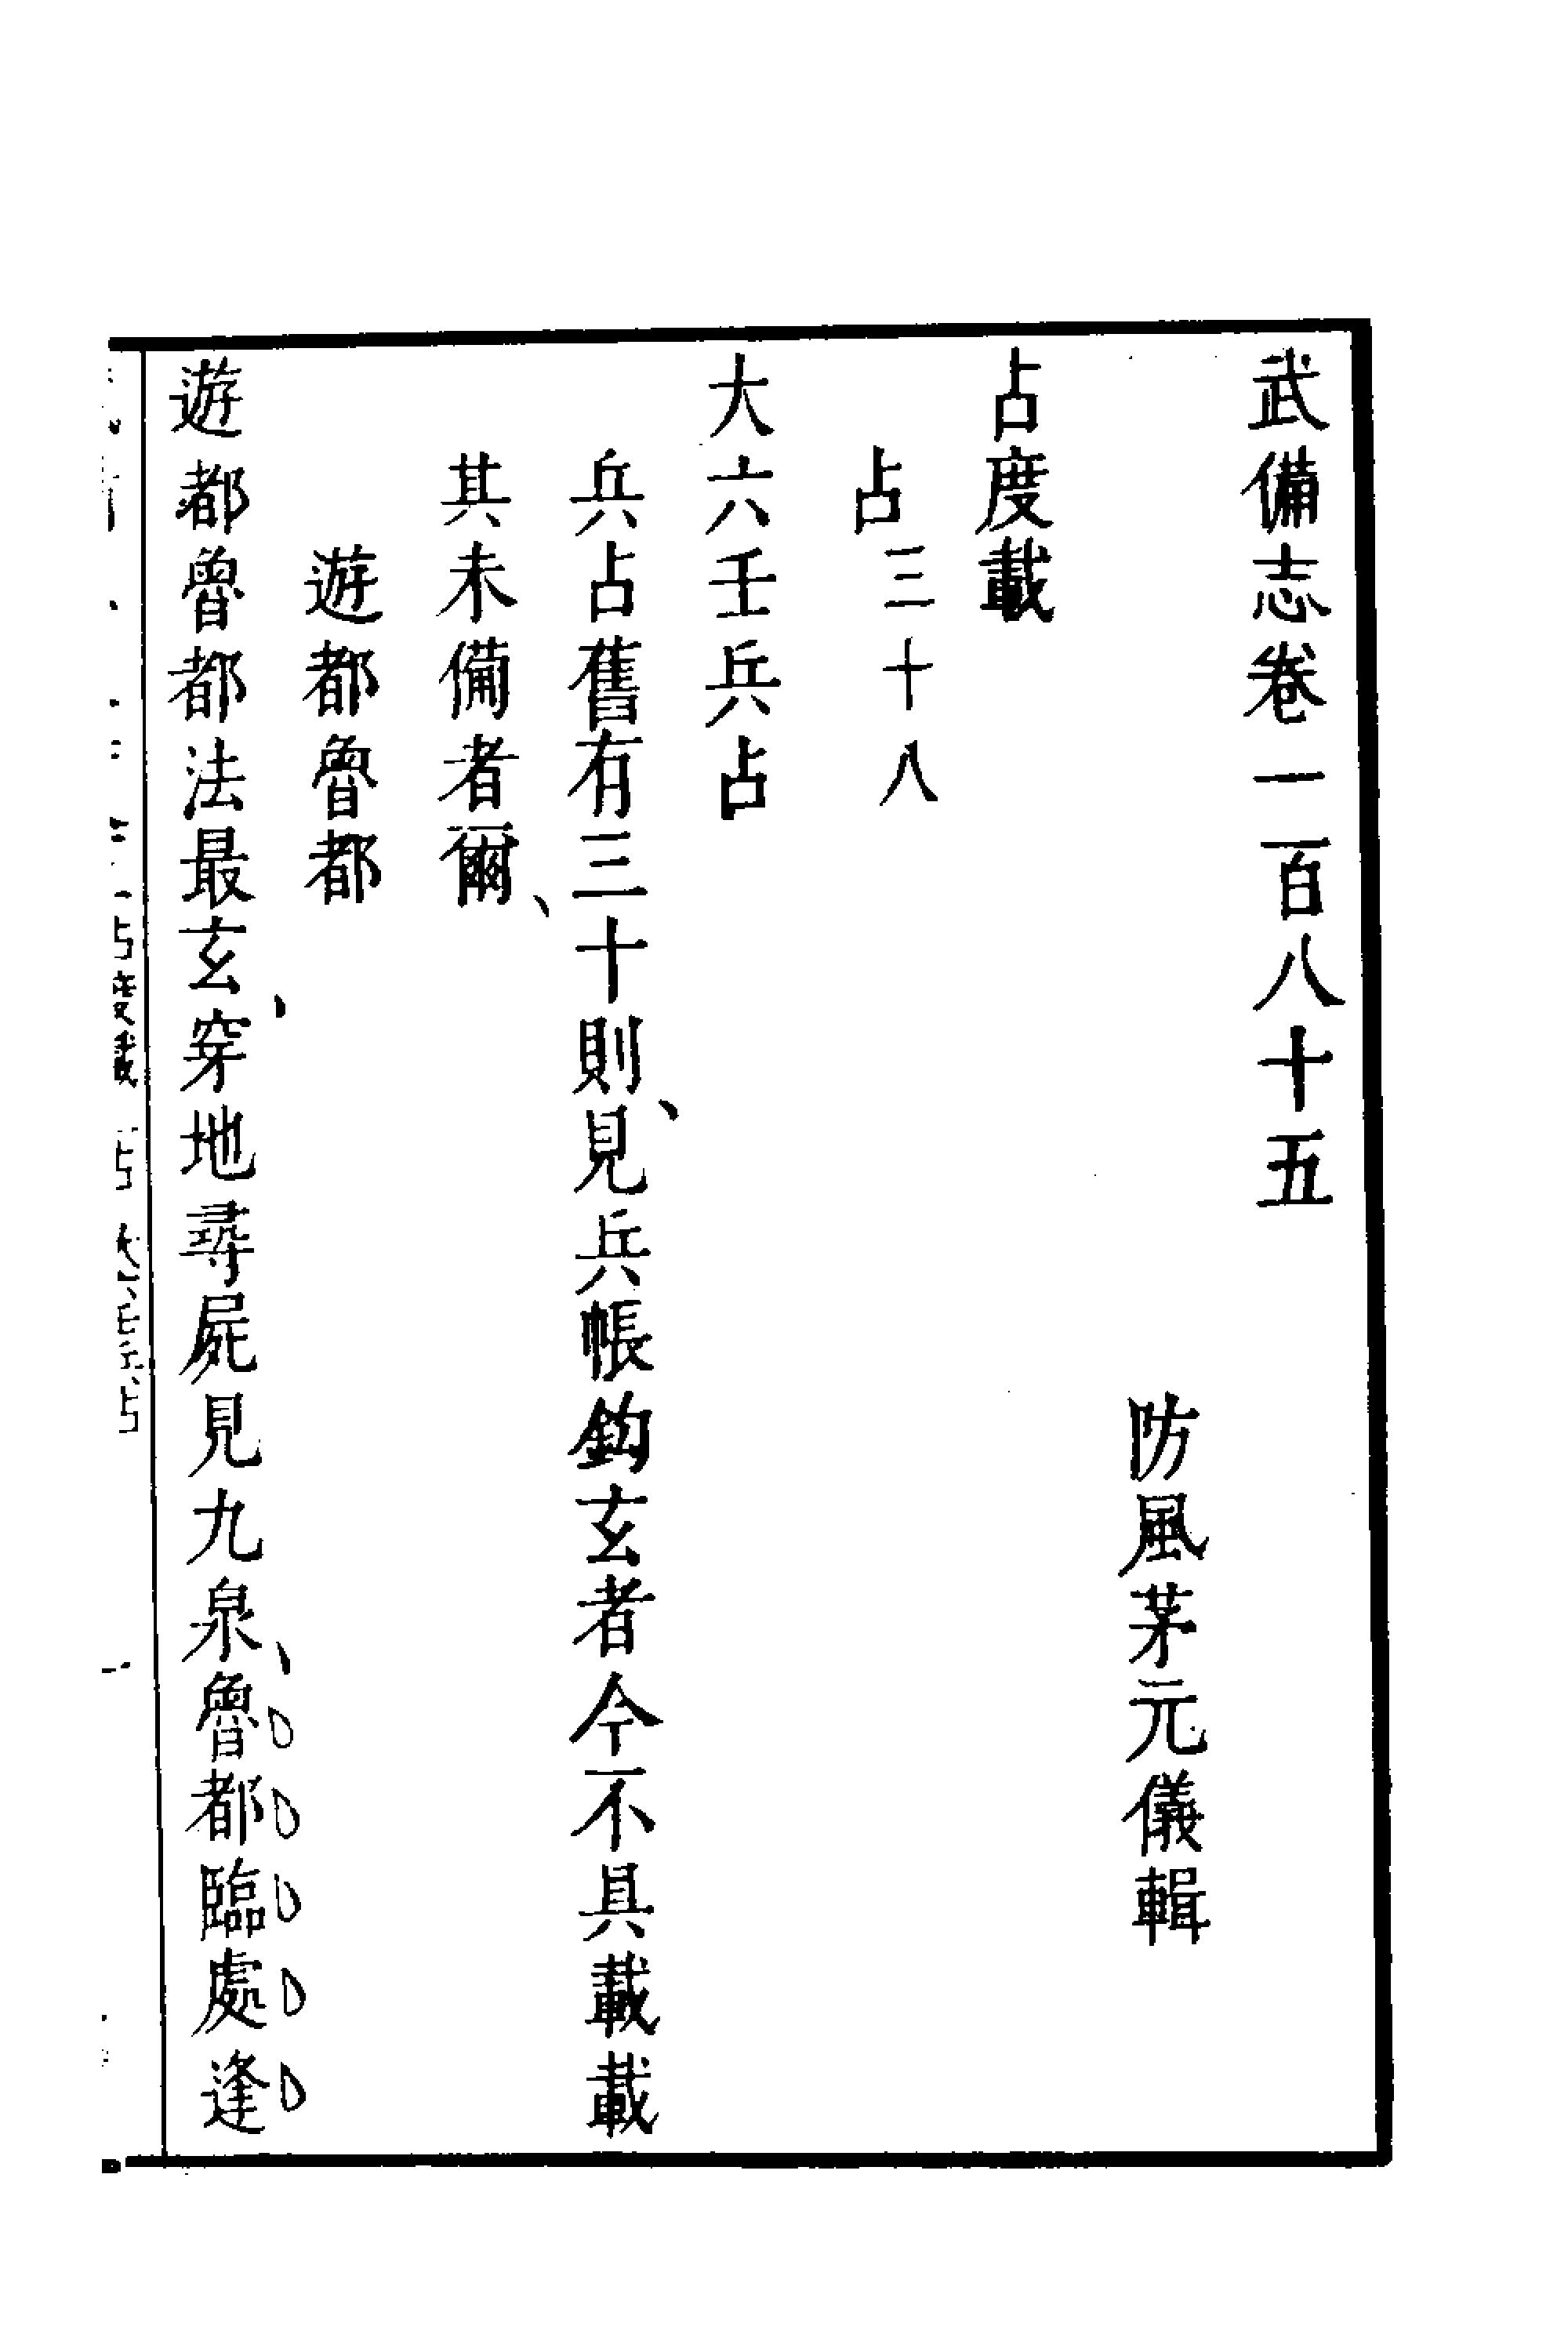 武備志卷一百八十五
防風茅元儀輯
占度載
占三十八
大六壬兵占
兵占舊有三十則、見兵帳鈎玄者今不具載載
其未備者爾、
遊都魯都
遊都魯都法最玄、穿地尋屍見九泉、魯都臨處逢
占度載 占 大六壬兵占 一